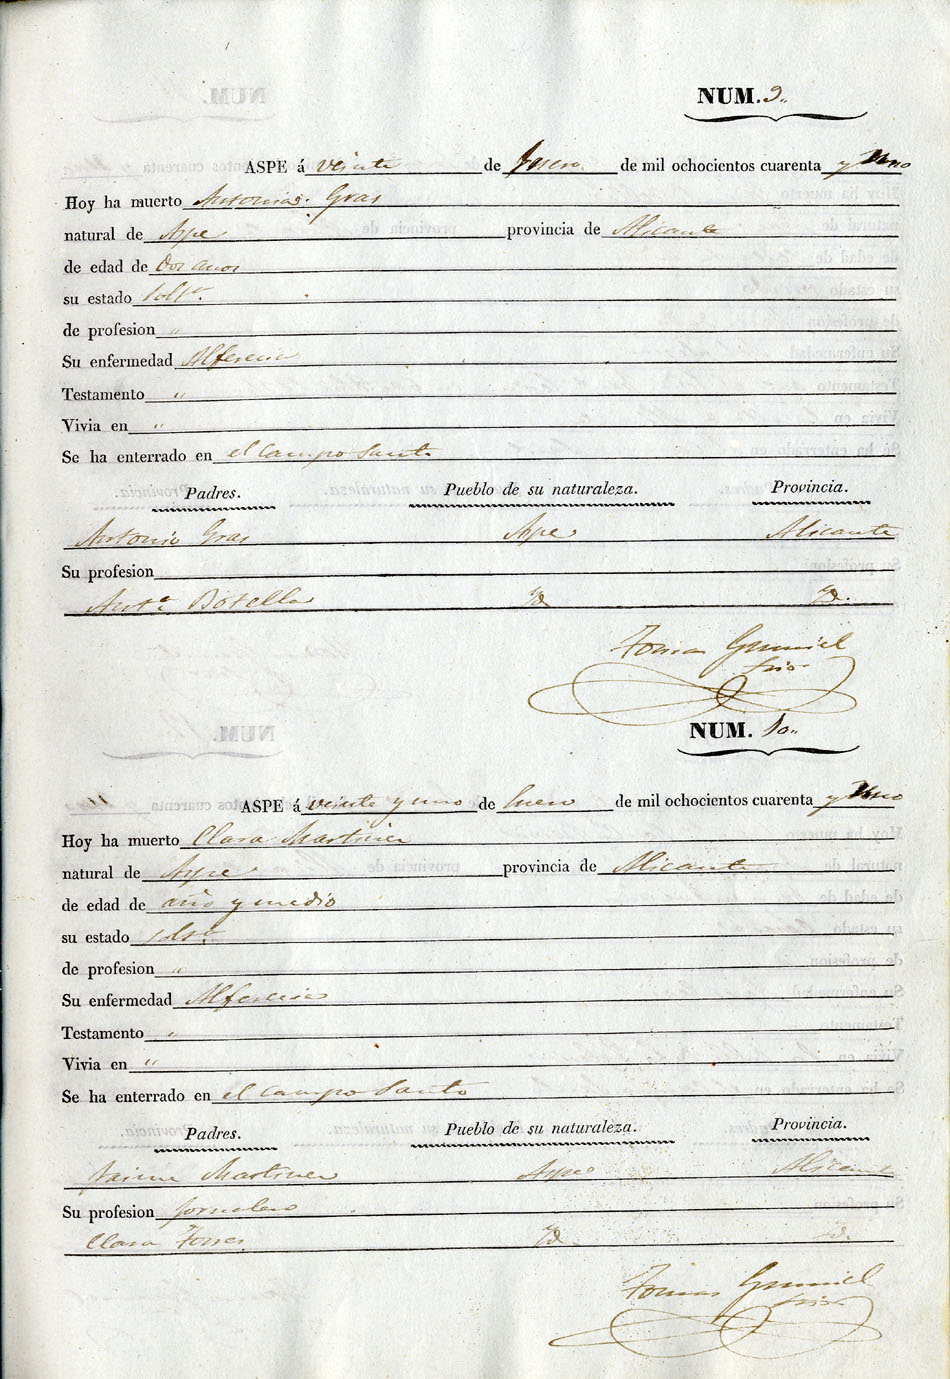 NUM. 9.
ASPE á veinte de Enero de mil ochocientos cuarenta y Uno
Hoy ha muerto Antonia Gras
natural de Aspe provincia de Alicante
de edad de dos años
su estado solt.ª
de profesion "
Su enfermedad Alferecia
Testamento "
Vivia en "
Se ha enterrado en el Campo Santo
Padres. Pueblo de su naturaleza. Provincia.
Antonio Gras Aspe Alicante
Su profesion
Ant.ª Botella Yd. Yd.
Tomas
NUM. 10.
ASPE á veinte y uno de Enero de mil ochocientos cuarenta y Uno
Hoy ha muerto Clara Martinez
natural de Aspe provincia de Alicante
de edad de año y medio
su estado solt.ª
de profesion "
Su enfermedad Alferecia
Testamento "
Vivia en "
Se ha enterrado en el Campo Santo
Padres. Pueblo de su naturaleza. Provincia.
Jaime Martinez Aspe Alicante
Su profesion Jornalero
Clara Torres Yd. Yd.
Tomas